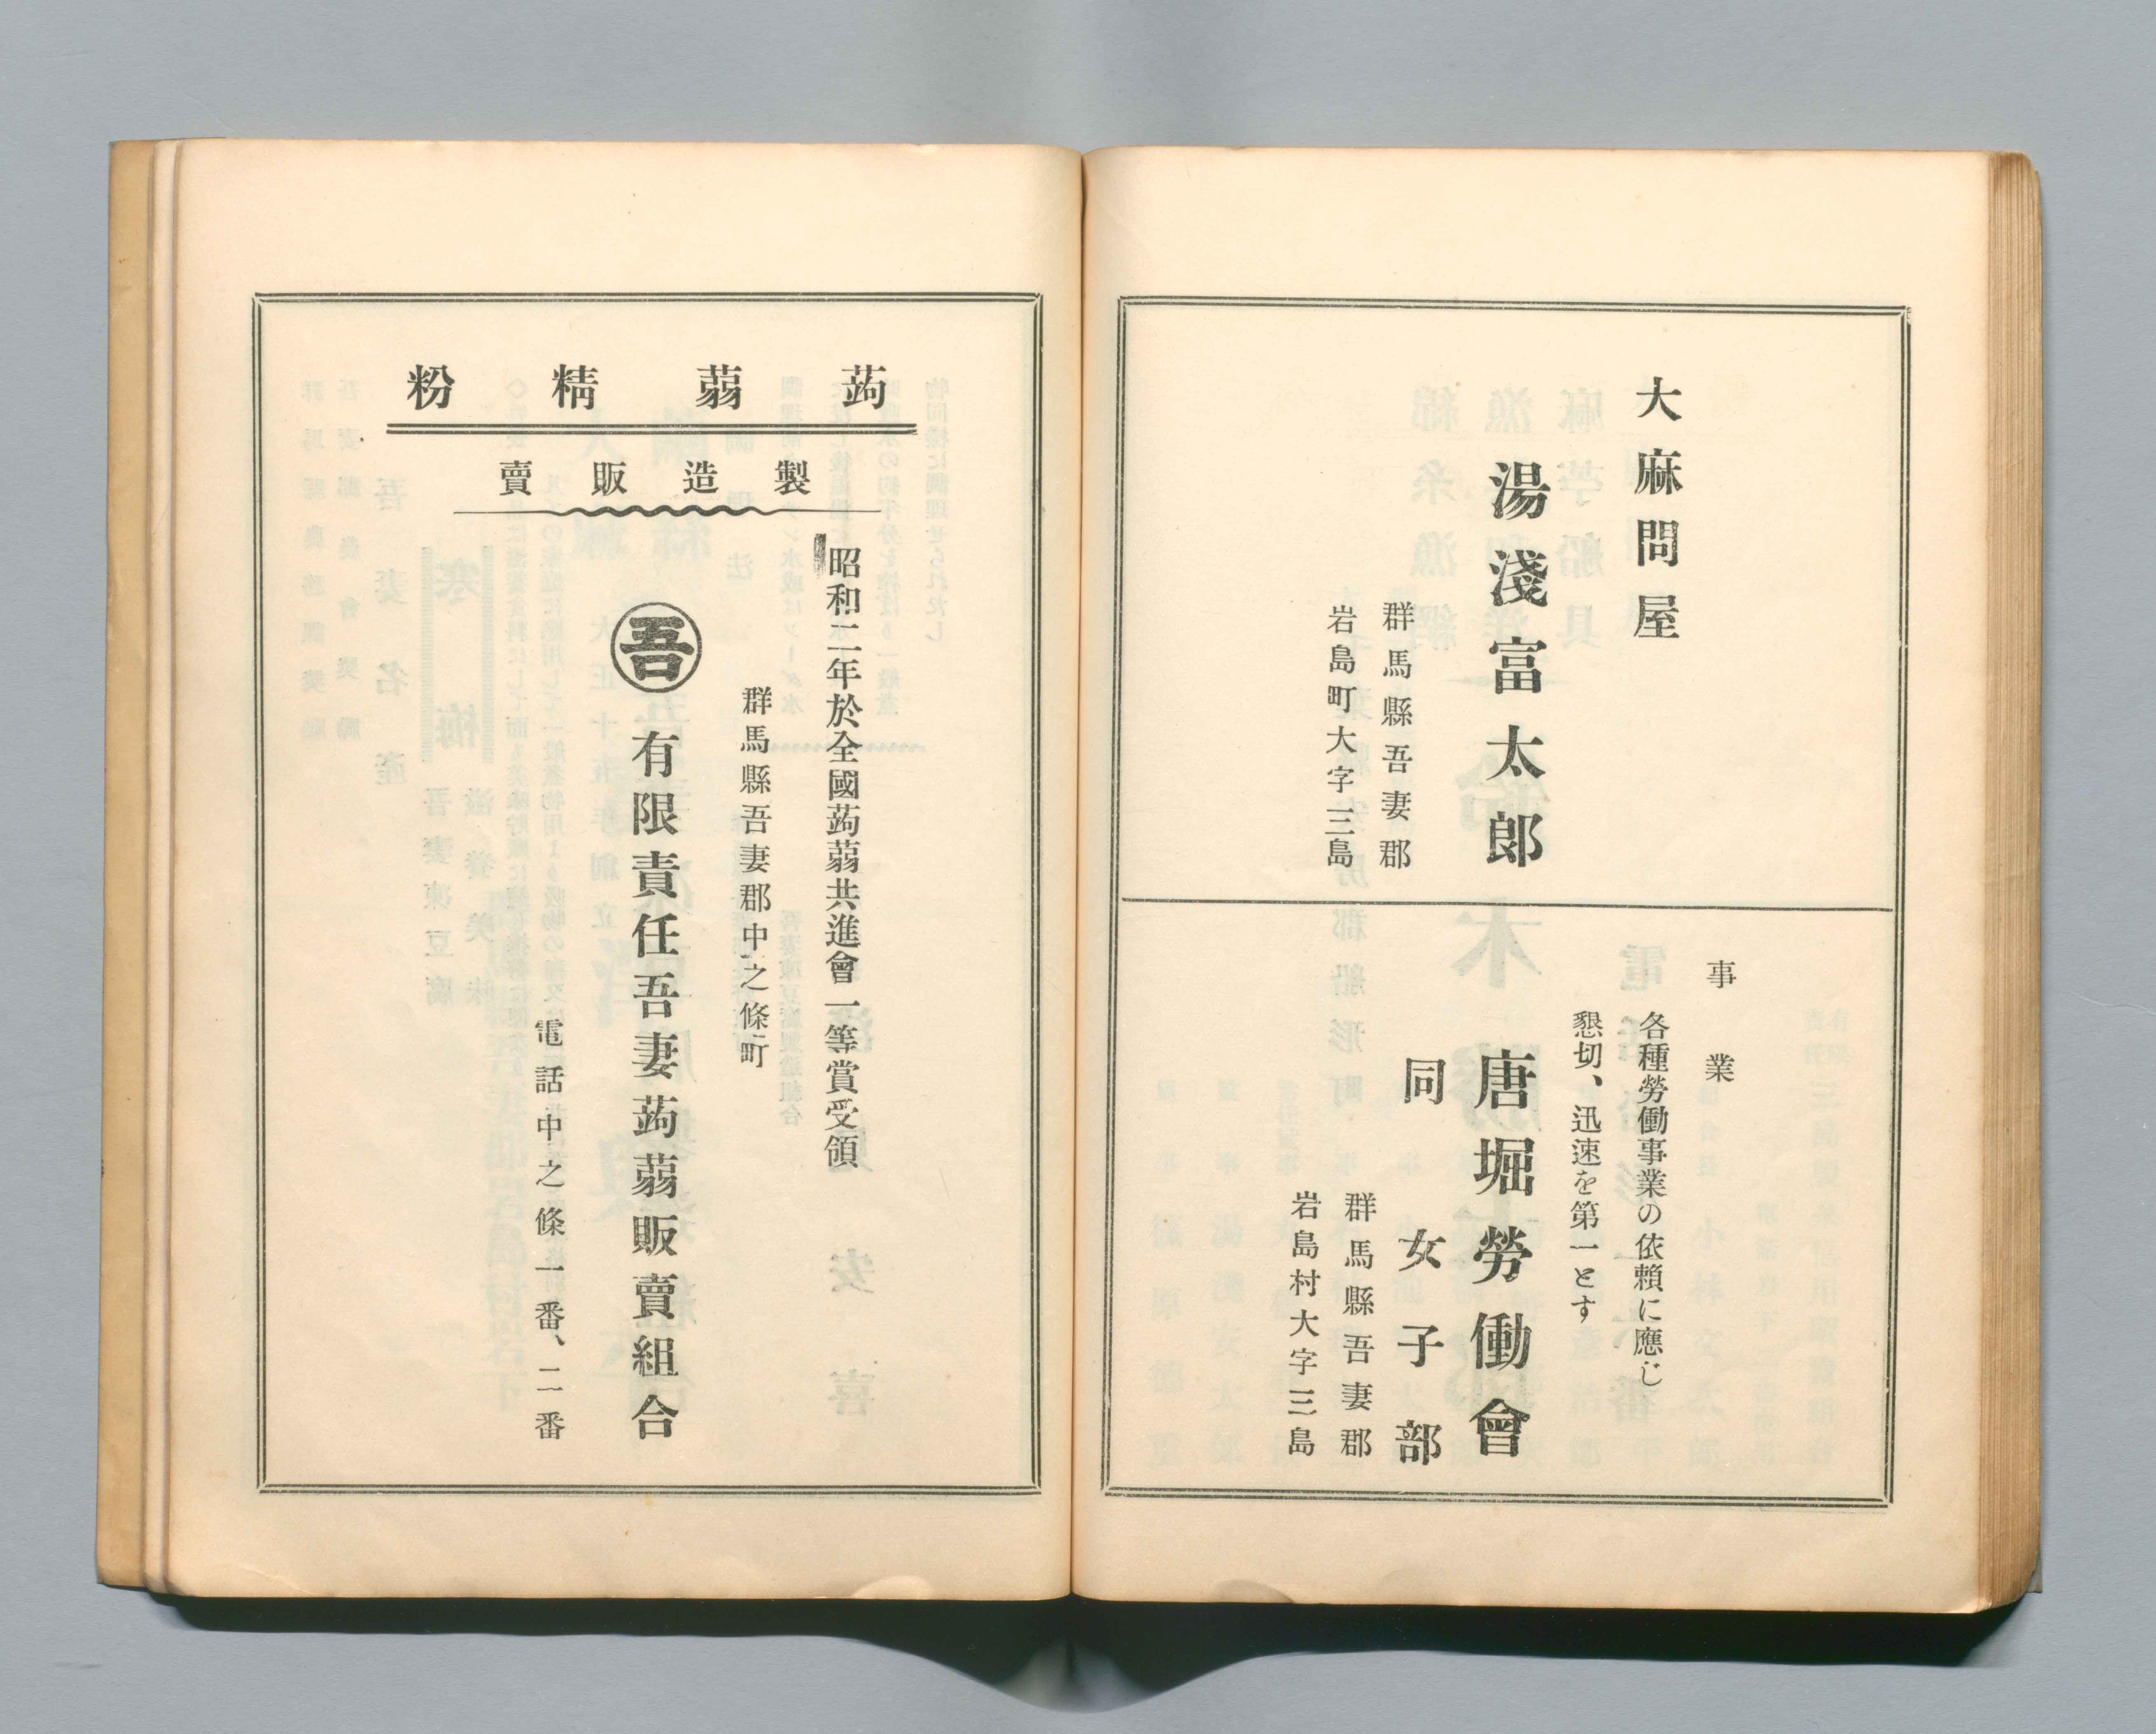 大麻問屋
湯淺富太郎
群馬縣吾妻郡
岩島町大字三島
事業
各種勞働事業の依賴に應じ
懇切、迅速を第一とす
唐堀勞働會
同女子部
群馬縣吾妻郡
岩島村大字三島
蒟蒻精粉
製造販賣
昭和二年於全國蒟蒻共進會一等賞受領
群馬縣吾妻郡中之條町
吾有限責任吾妻蒟蒻販賣組合
電話中之條一番、二番